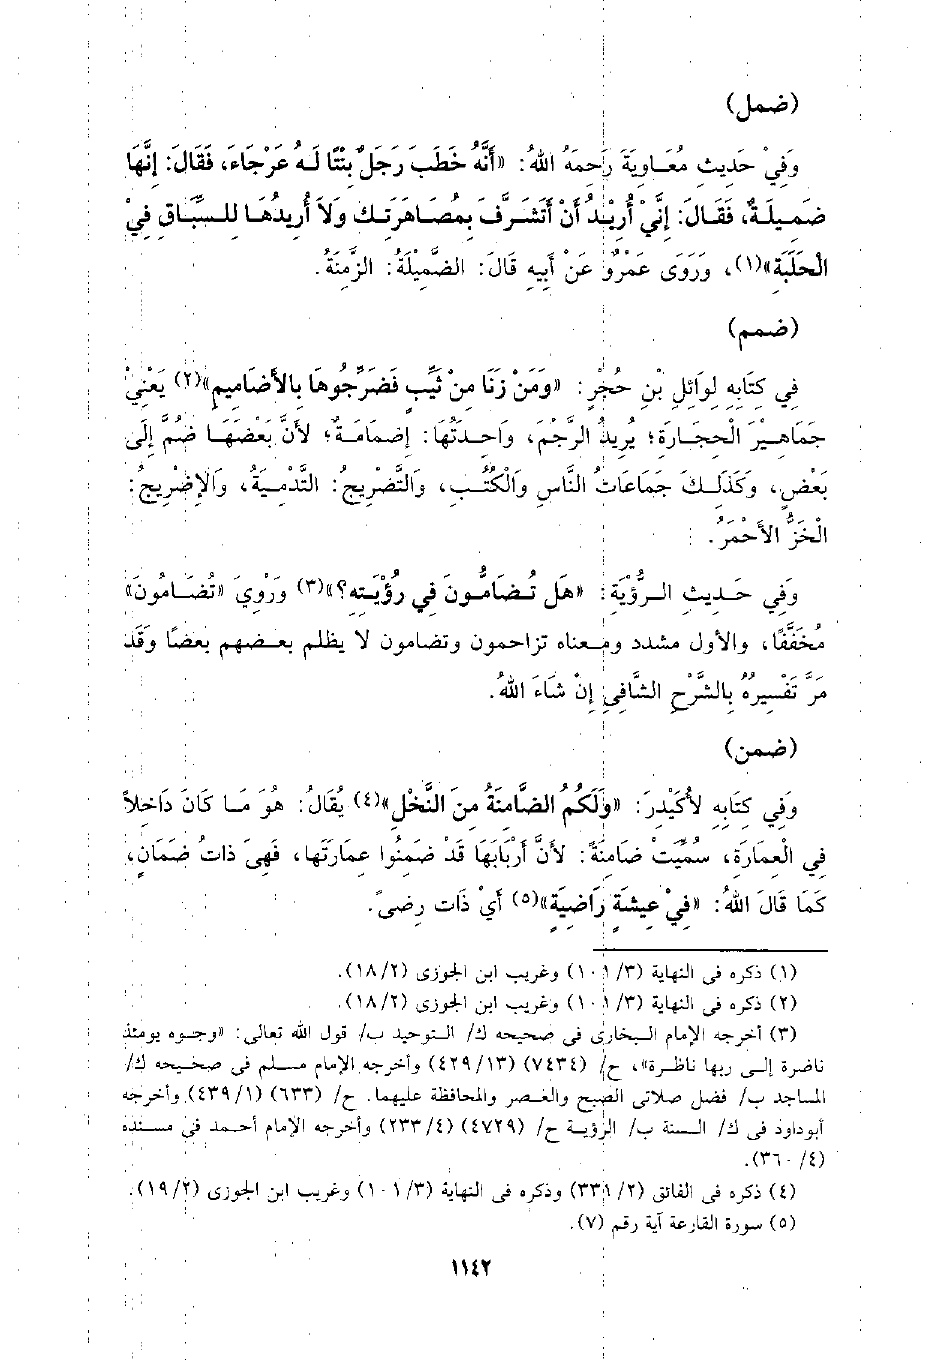 (ضمل)
وَفِيْ حَدِيثِ مُعَاوِيَةَ رَحِمَهُ اللهُ: «أَنَّهُ خَطَبَ رَجَلٌ بِنْتًا لَهُ عَرْجَاءَ، فَقَالَ: إِنَّهَا
ضَمِيلَةٌ، فَقَالَ: إِنِّيْ أُرِيْدُ أَنْ أَتَشَرَّفَ بِمُصَاهَرَتِكَ وَلاَ أُرِيدُهَا لِلسِّبَاقِ فِيْ
الْحَلَبَةِ»(١)، وَرَوَى عَمْرٌو عَنْ أَبِيهِ قَالَ: الضَّمِيْلَةُ: الزَّمِنَةُ.
(ضمم)
فِي كِتَابِهِ لِوَائِلِ بْنِ حُجْرٍ: «وَمَنْ زَنَا مِنْ ثَيِّبٍ فَضَرِّجُوهَا بِالأَضَامِيمِ»(٢) يَعْنِيْ
جَمَاهِيْرَ الْحِجَارَةِ؛ يُرِيدُ الرَّجْمَ، وَاحِدَتُهَا: إِضمَامَةٌ؛ لأَنَّ بَعْضَهَا ضُمَّ إِلَى
بَعْضٍ، وَكَذَلِكَ جَمَاعَاتُ النَّاسِ وَالْكُتُبِ، وَالتَّضْرِيجُ: التَّدْمِيَةُ، وَالإِضْرِيجُ:
الْخَزُّ الأَحْمَرُ.
وَفِي حَدِيثِ الرُّؤْيَةِ: «هَل تُضَامُّونَ فِي رُؤْيَتِهِ؟»(٣) وَرُوِيَ «تُضَامُونَ»
مُخَفَّفًا، والأول مشدد ومعناه تزاحمون وتضامون لا يظلم بعضهم بعضًا وَقَدْ
مَرَّ تَفْسِيرُهُ بِالشَّرْحِ الشَّافِي إِنْ شَاءَ اللهُ.
(ضمن)
وَفِي كِتَابِهِ لأُكَيْدِرَ: «وَلَكُمُ الضَّامِنَةُ مِنَ النَّخْلِ»(٤) يُقَالُ: هُوَ مَا كَانَ دَاخِلاً
فِي الْعِمَارَةِ، سُمِّيَتْ ضَامِنَةً: لأَنَّ أَرْبَابَهَا قَدْ ضَمِنُوا عِمَارَتَهَا، فَهِيَ ذَاتُ ضَمَانٍ،
كَمَا قَالَ اللهُ: «فِيْ عِيشَةٍ رَاضِيَةٍ»(٥) أَيْ ذَات رِضىً.
(١) ذكره فى النهاية (٣/ ١٠١) وغريب ابن الجوزى (٢/ ١٨).
(٢) ذكره فى النهاية (٣/ ١٠١) وغريب ابن الجوزى (٢/ ١٨).
(٣) أخرجه الإمام البخارى فى صحيحه ك/ التوحيد ب/ قول الله تعالى: «وجوه يومئذ
ناضرة إلى ربها ناظرة»، ح/ (٧٤٣٤) (١٣/ ٤٢٩) وأخرجه الإمام مسلم فى صحيحه ك/
المساجد ب/ فضل صلاتى الصبح والعصر والمحافظة عليهما. ح/ (٦٣٣) (١/ ٤٣٩) وأخرجه
أبوداود فى ك/ السنة ب/ الرؤية ح/ (٤٧٢٩) (٤/ ٢٣٣) وأخرجه الإمام أحمد فى مسنده
(٤/ ٣٦٠).
(٤) ذكره فى الفائق (٢/ ٣٣١) وذكره فى النهاية (٣/ ١٠١) وغريب ابن الجوزى (٢/ ١٩).
(٥) سورة القارعة آية رقم (٧).
١١٤٢